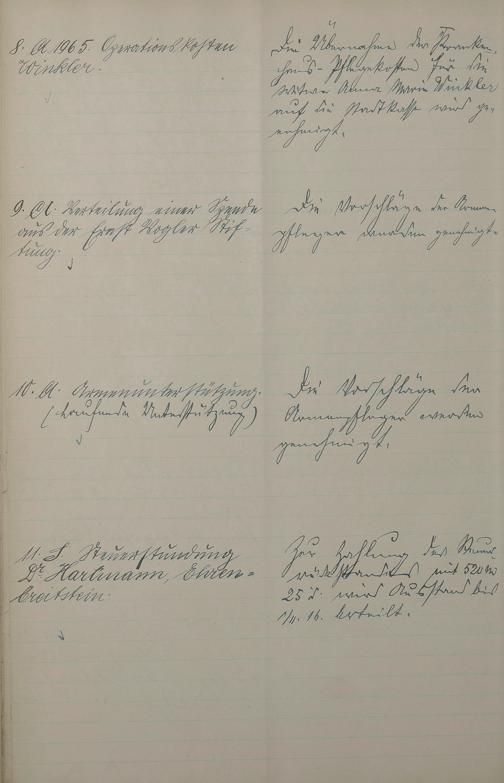 8. A. 1965. Operationskosten
Winkler.
Die Übernahme der Kranken-
haus-Pflegekosten für die
Witwe Anna Maria Winkler
auf die Stadtkasse wird ge-
nehmigt.
9. A. Verteilung einer Spende
aus der Ernst Vogler Stif-
tung.
Die Vorschläge der Armen-
pfleger werden genehmigt.
10. A. Armenunterstützung.
(laufende Unterstützung)
Die Vorschläge der
Armenpfleger werden
genehmigt.
11. S. Steuerstundung
Dr. Hartmann, Ehren-
breitstein.
Zur Zahlung des Steuer-
rückstandes mit 520 M
25 d. wird Ausstand bis
16. erteilt.